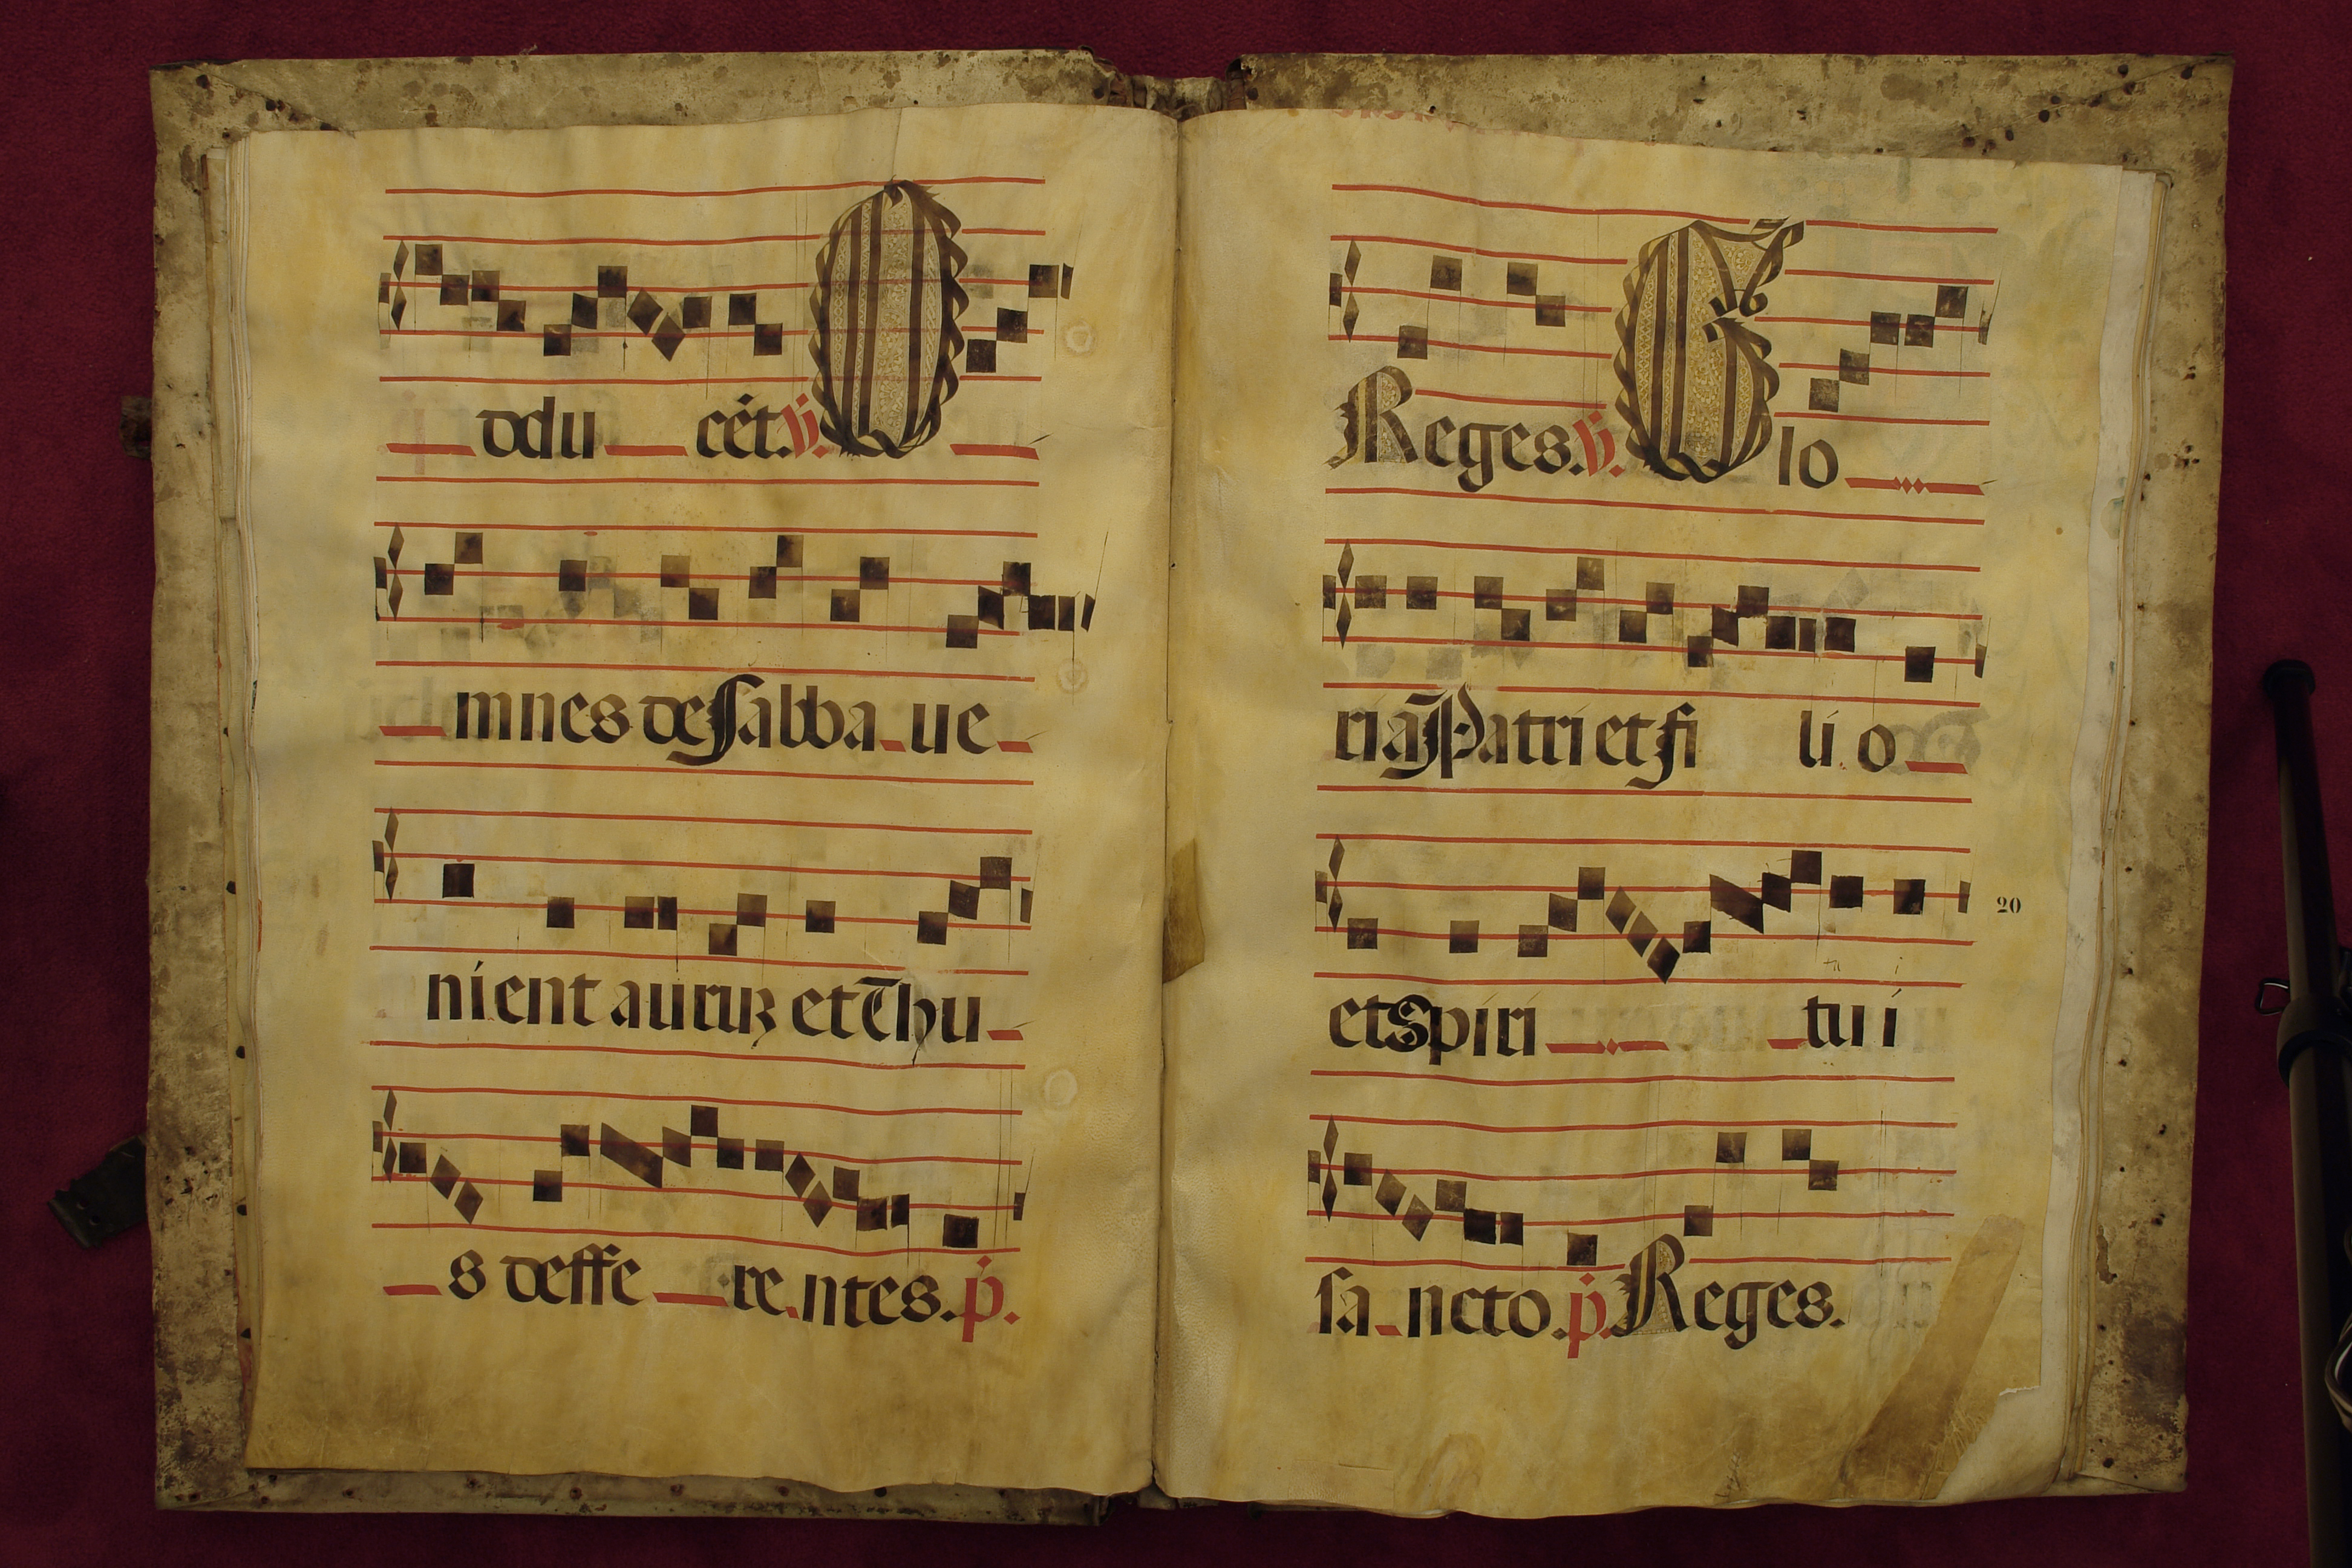 ddu cét. ℣. O
mnes de Sabba ue
nient aurum et Thu
s deffe re ntes. p.
Reges. ℣. Glo
ria Patri et fi li o
et Spiri tu i
20
sa ncto. p. Reges.